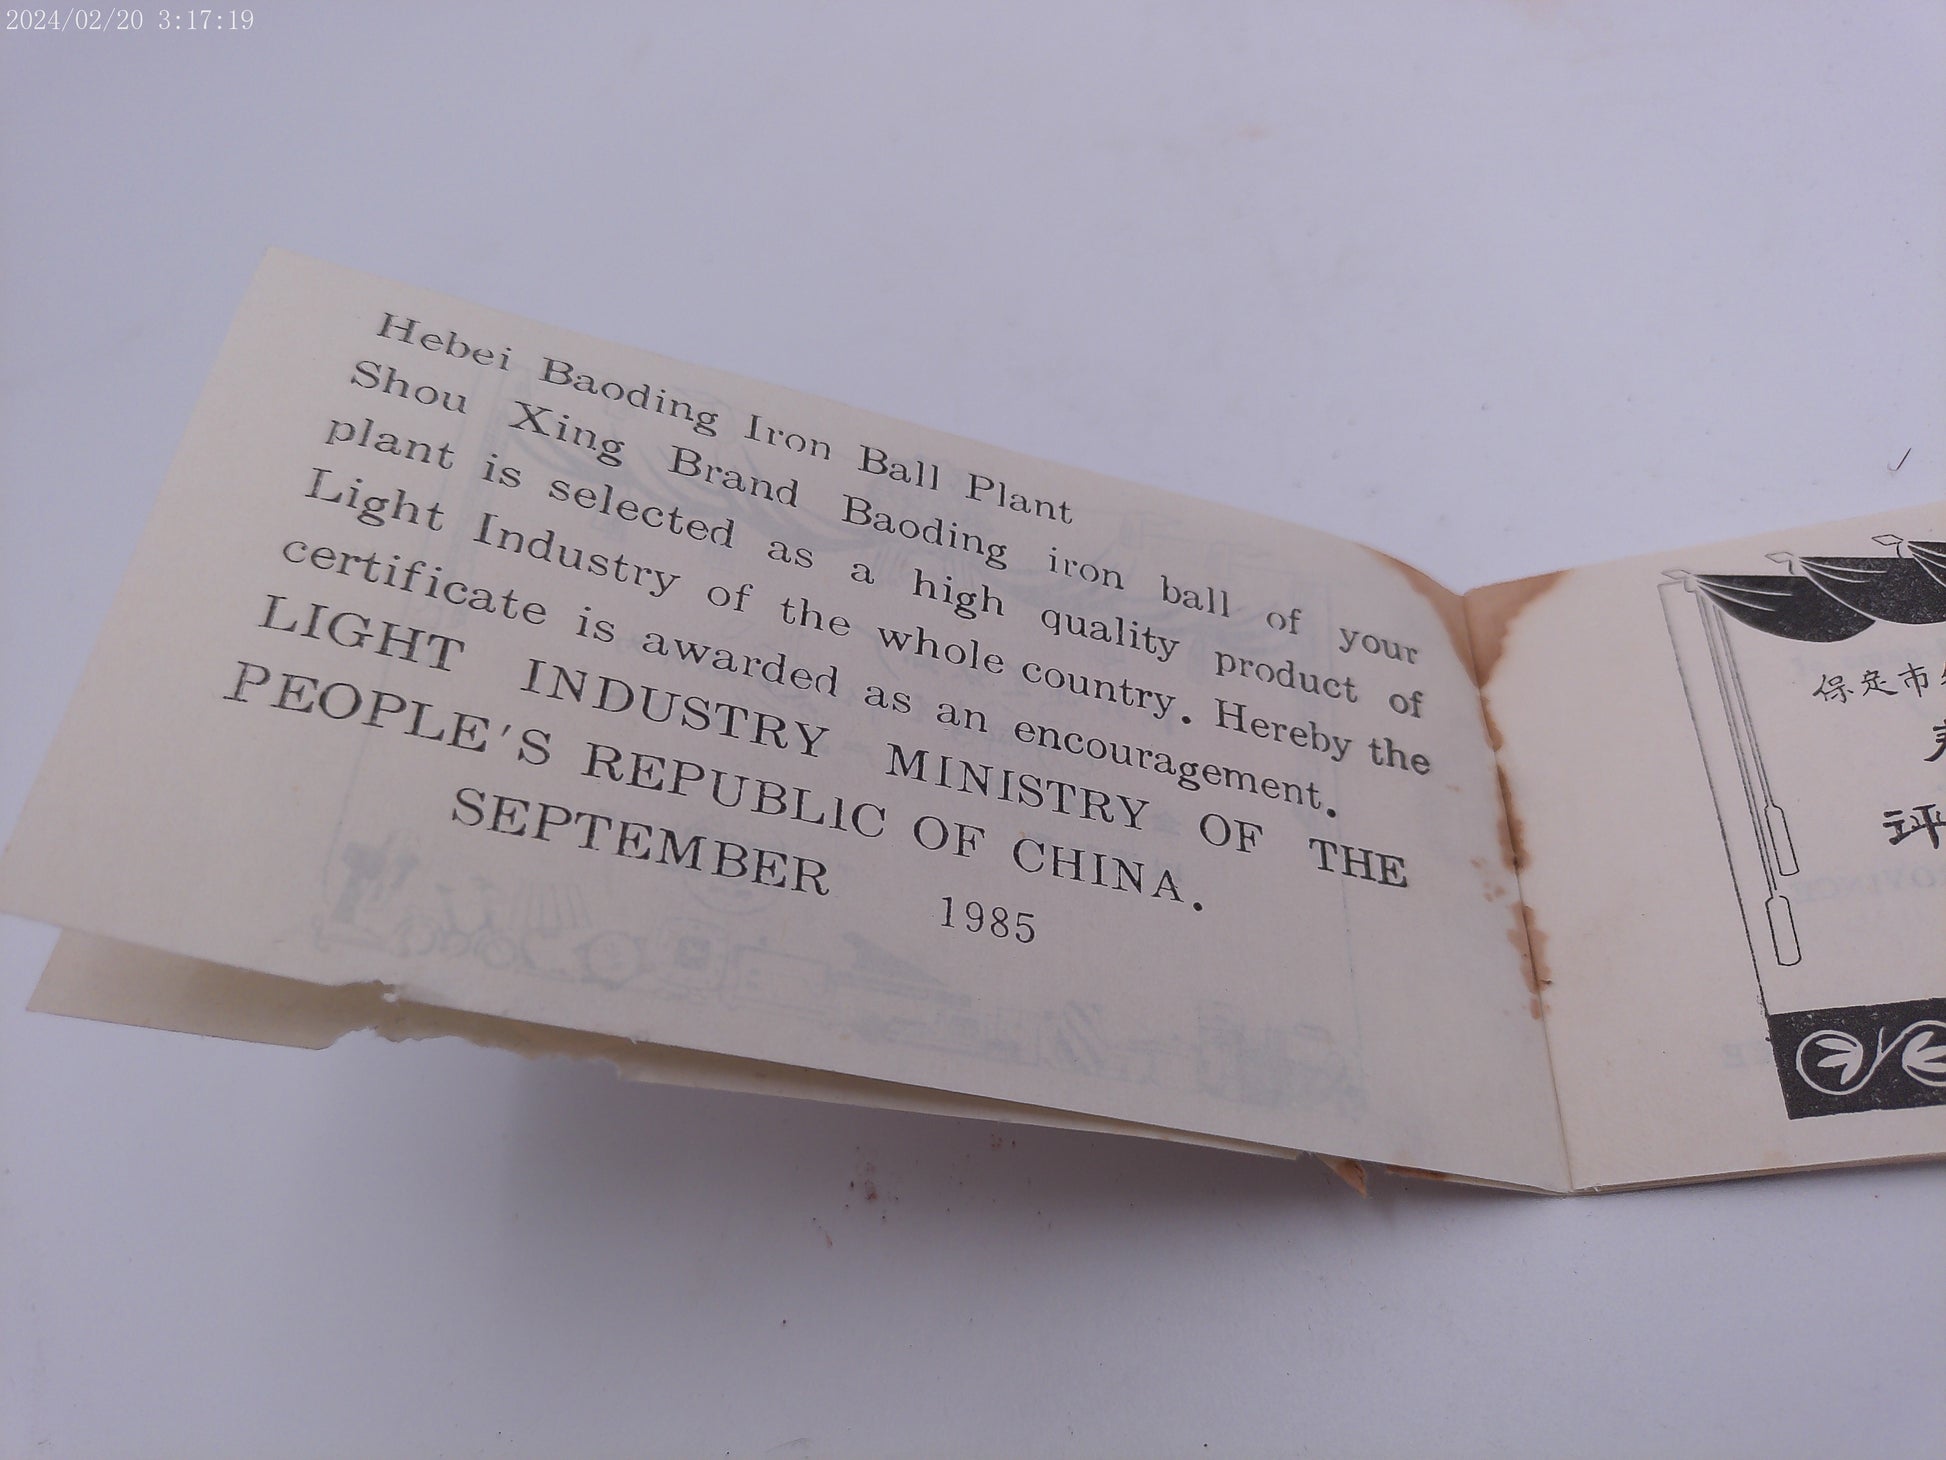 2024/02/20 3:17:19
Hebei Baoding Iron Ball Plant
Shou Xing Brand Baoding iron ball of your
plant is selected as a high quality product of
Light Industry of the whole country. Hereby the
certificate is awarded as an encouragement.
LIGHT INDUSTRY MINISTRY OF THE
PEOPLE'S REPUBLIC OF CHINA.
SEPTEMBER 1985
保定市
评